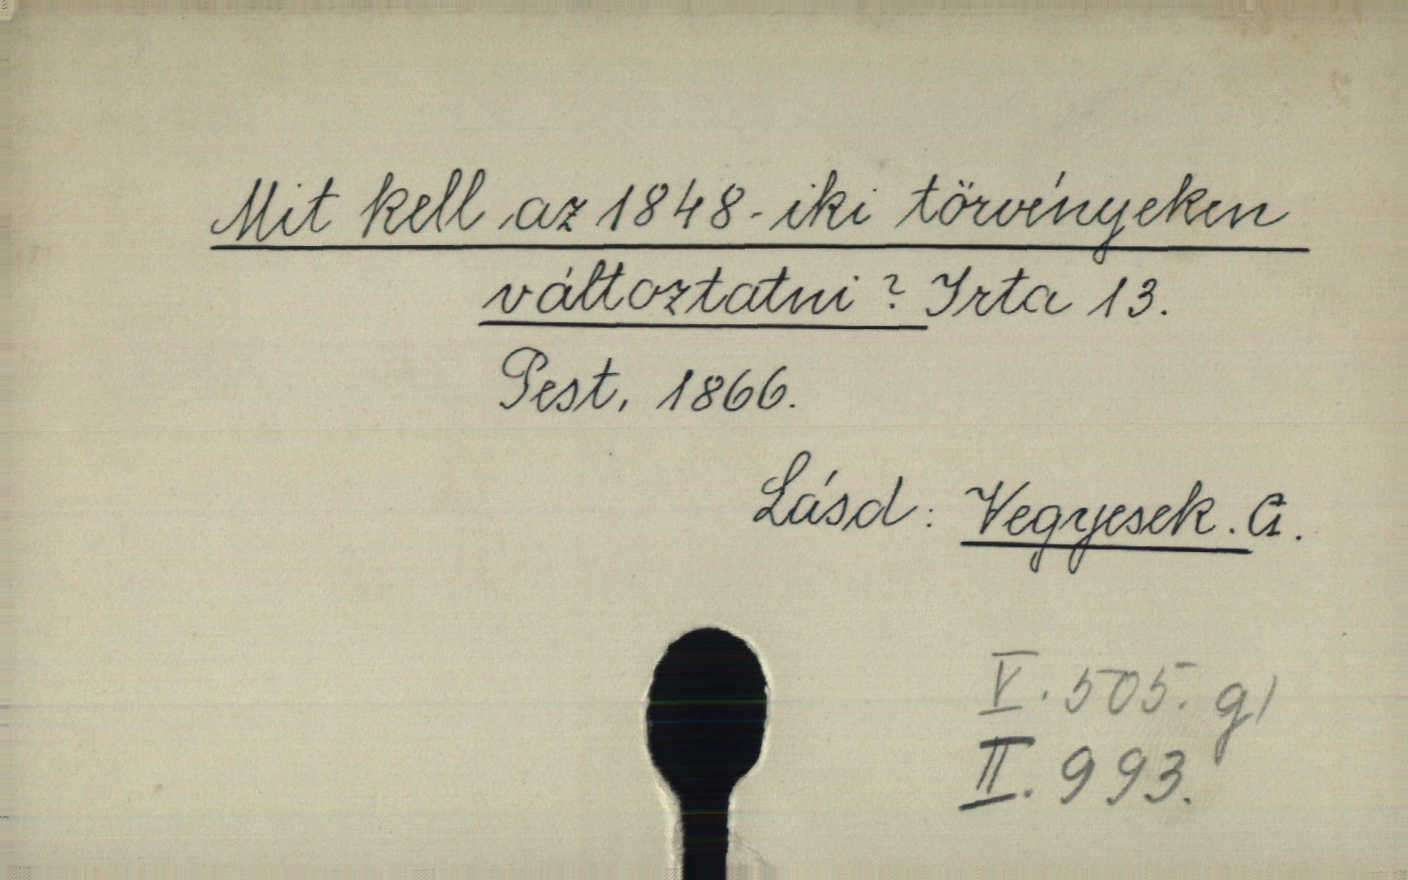 Mit kell az 1848-iki törvényeken
változtatni? Irta 13.
Pest, 1866.
Lásd: Vegyesek. G.
V. 505. g)
II. 993.